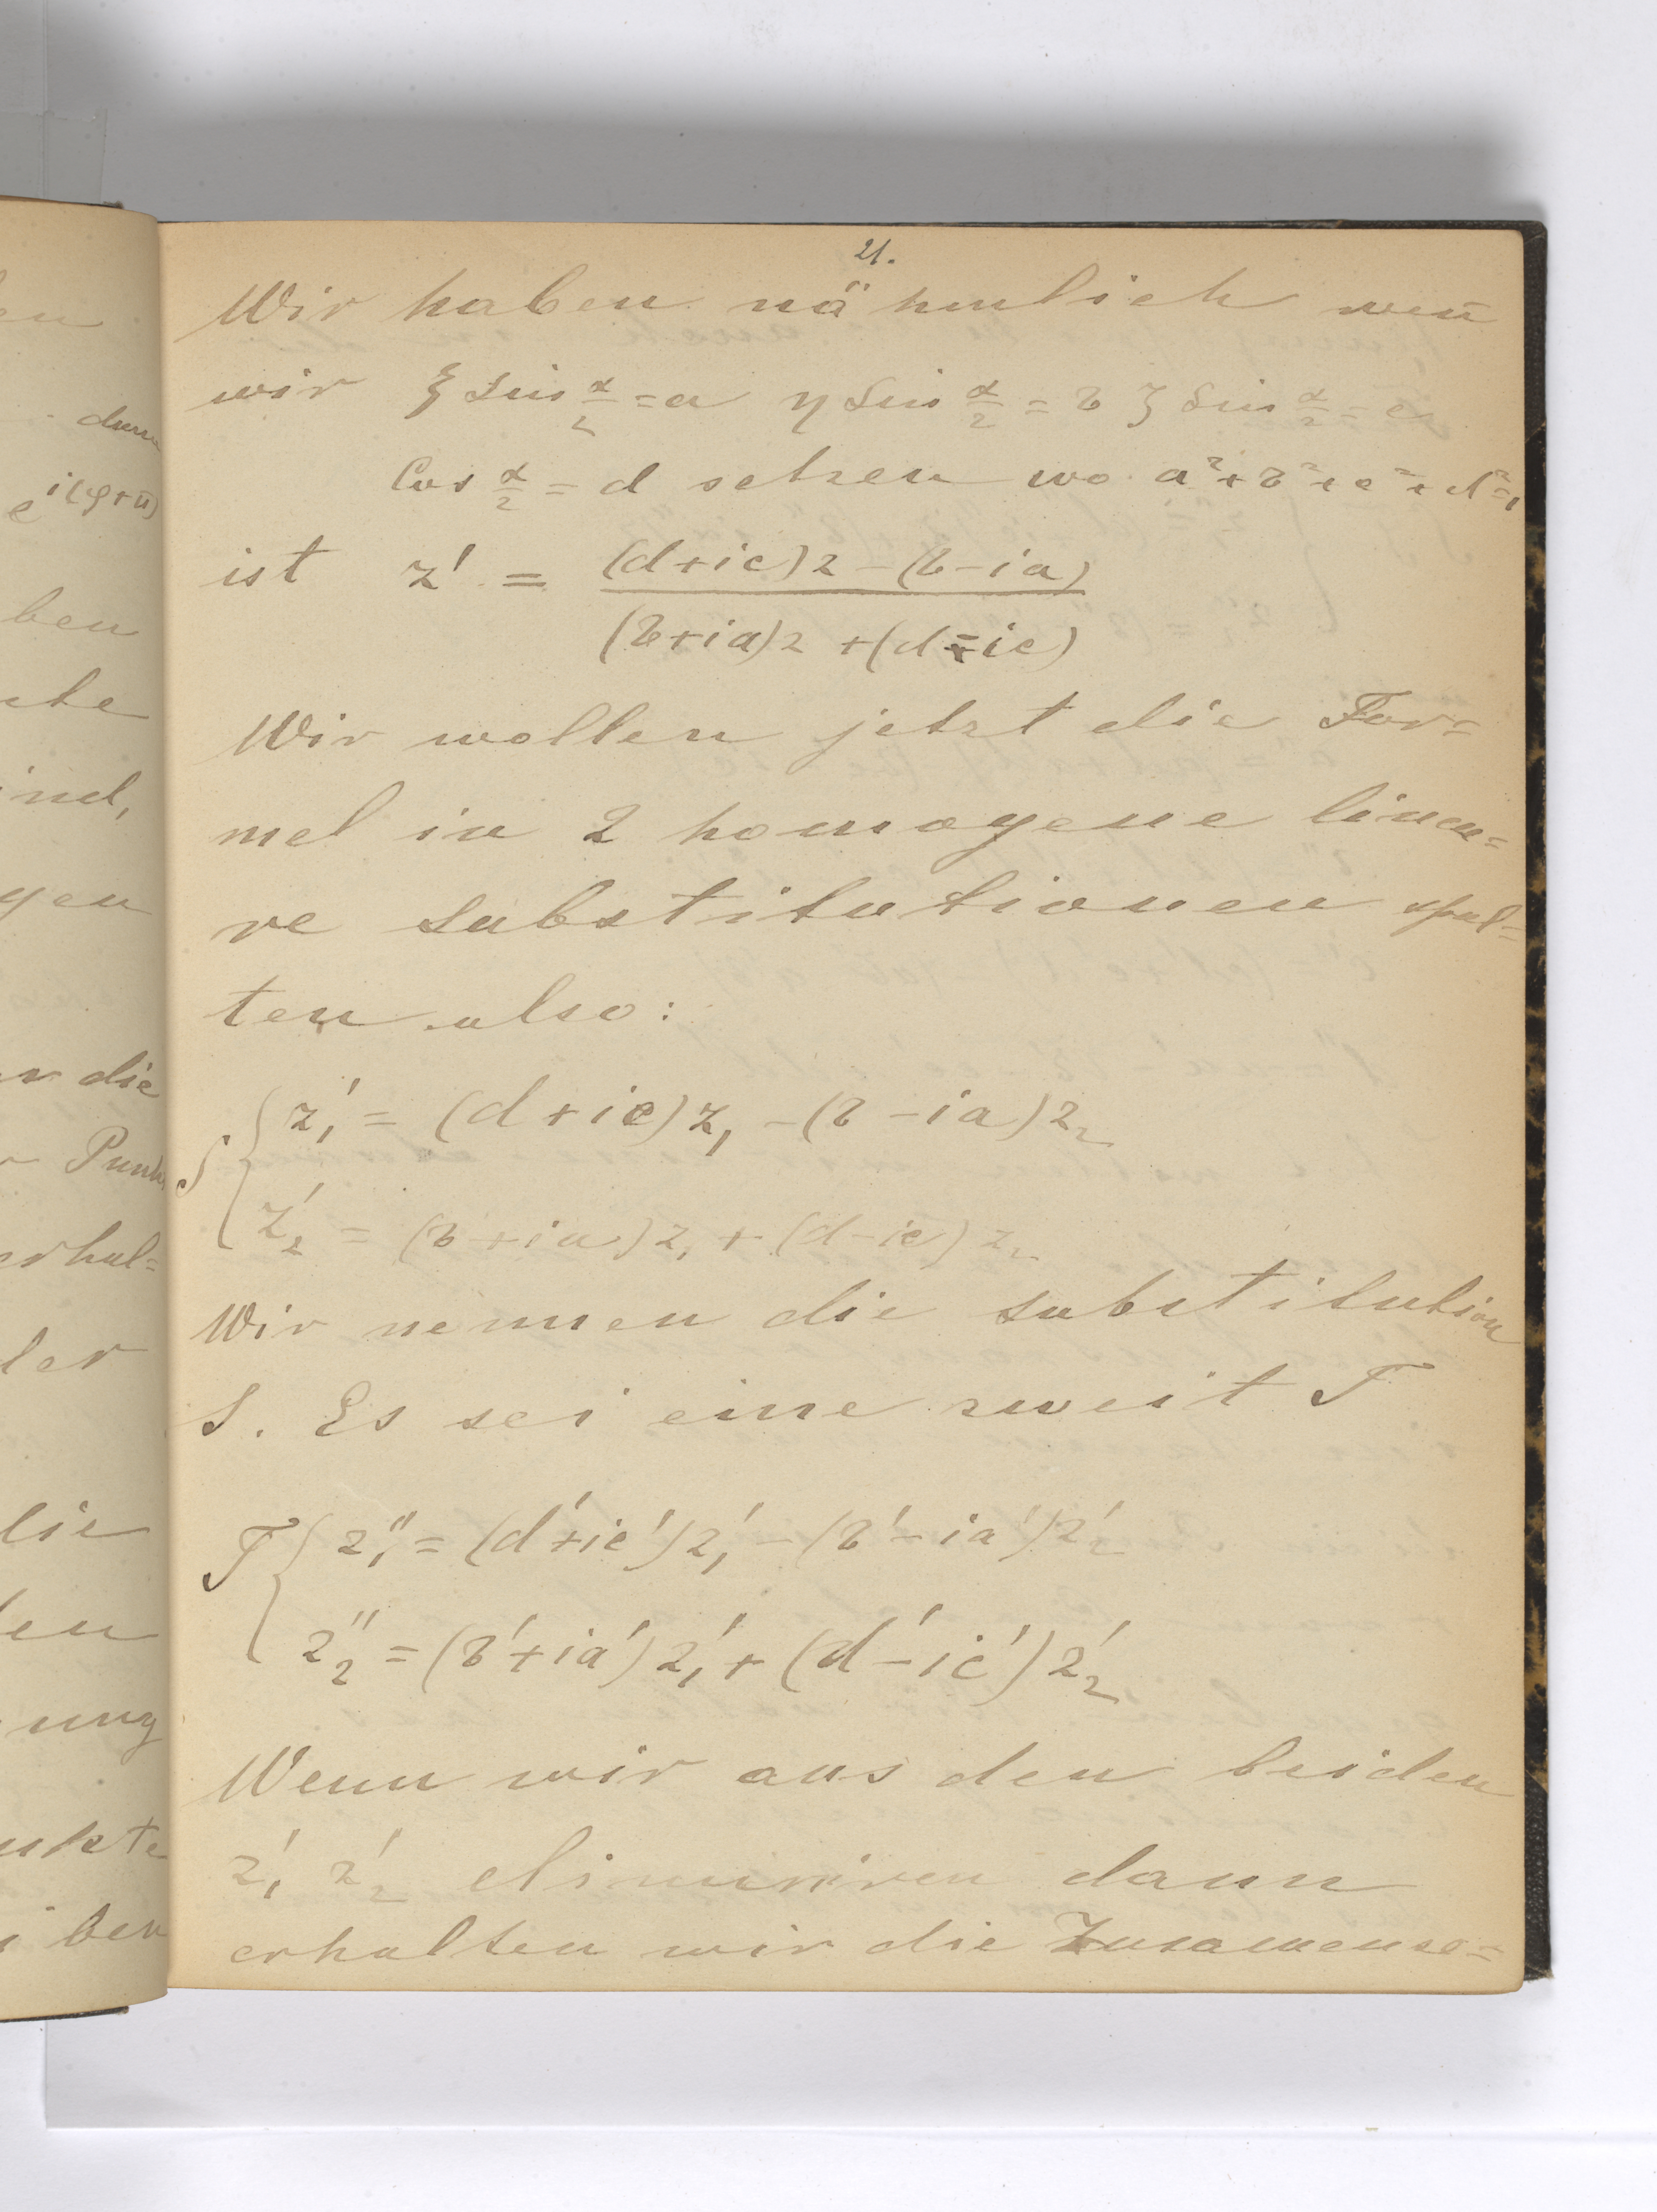 21.
Wir haben nähmlich weñ
wir ξ Sin α/2 = a η Sin α/2 = b ζ Sin α/2 = c
Cos α/2 = d setzen wo a²+b²+c²+d²=1
ist z' = (d+ic)z - (b-ia)
(b+ia)z + (d-ic)
Wir wollen jetzt die For=
mel in 2 homogene linea=
re Substitutionen spal=
ten also:
S { z₁' = (d+ic)z₁ - (b-ia)z₂
z₂' = (b+ia)z₁ + (d-ic)z₂
Wir nennen die Substitution
S. Es sei eine zweit T
T { z₁'' = (d'+ic')z₁' - (b'-ia')z₂'
z₂'' = (b'+ia')z₁' + (d'-ic')z₂'
Wenn wir aus den beiden
z₁' z₂' eliminiren dann
erhalten wir die Zusamense=
en
dann
e^i(φ+π)
ben
ind,
gen
die
Punk
erhal=
der
die
ung